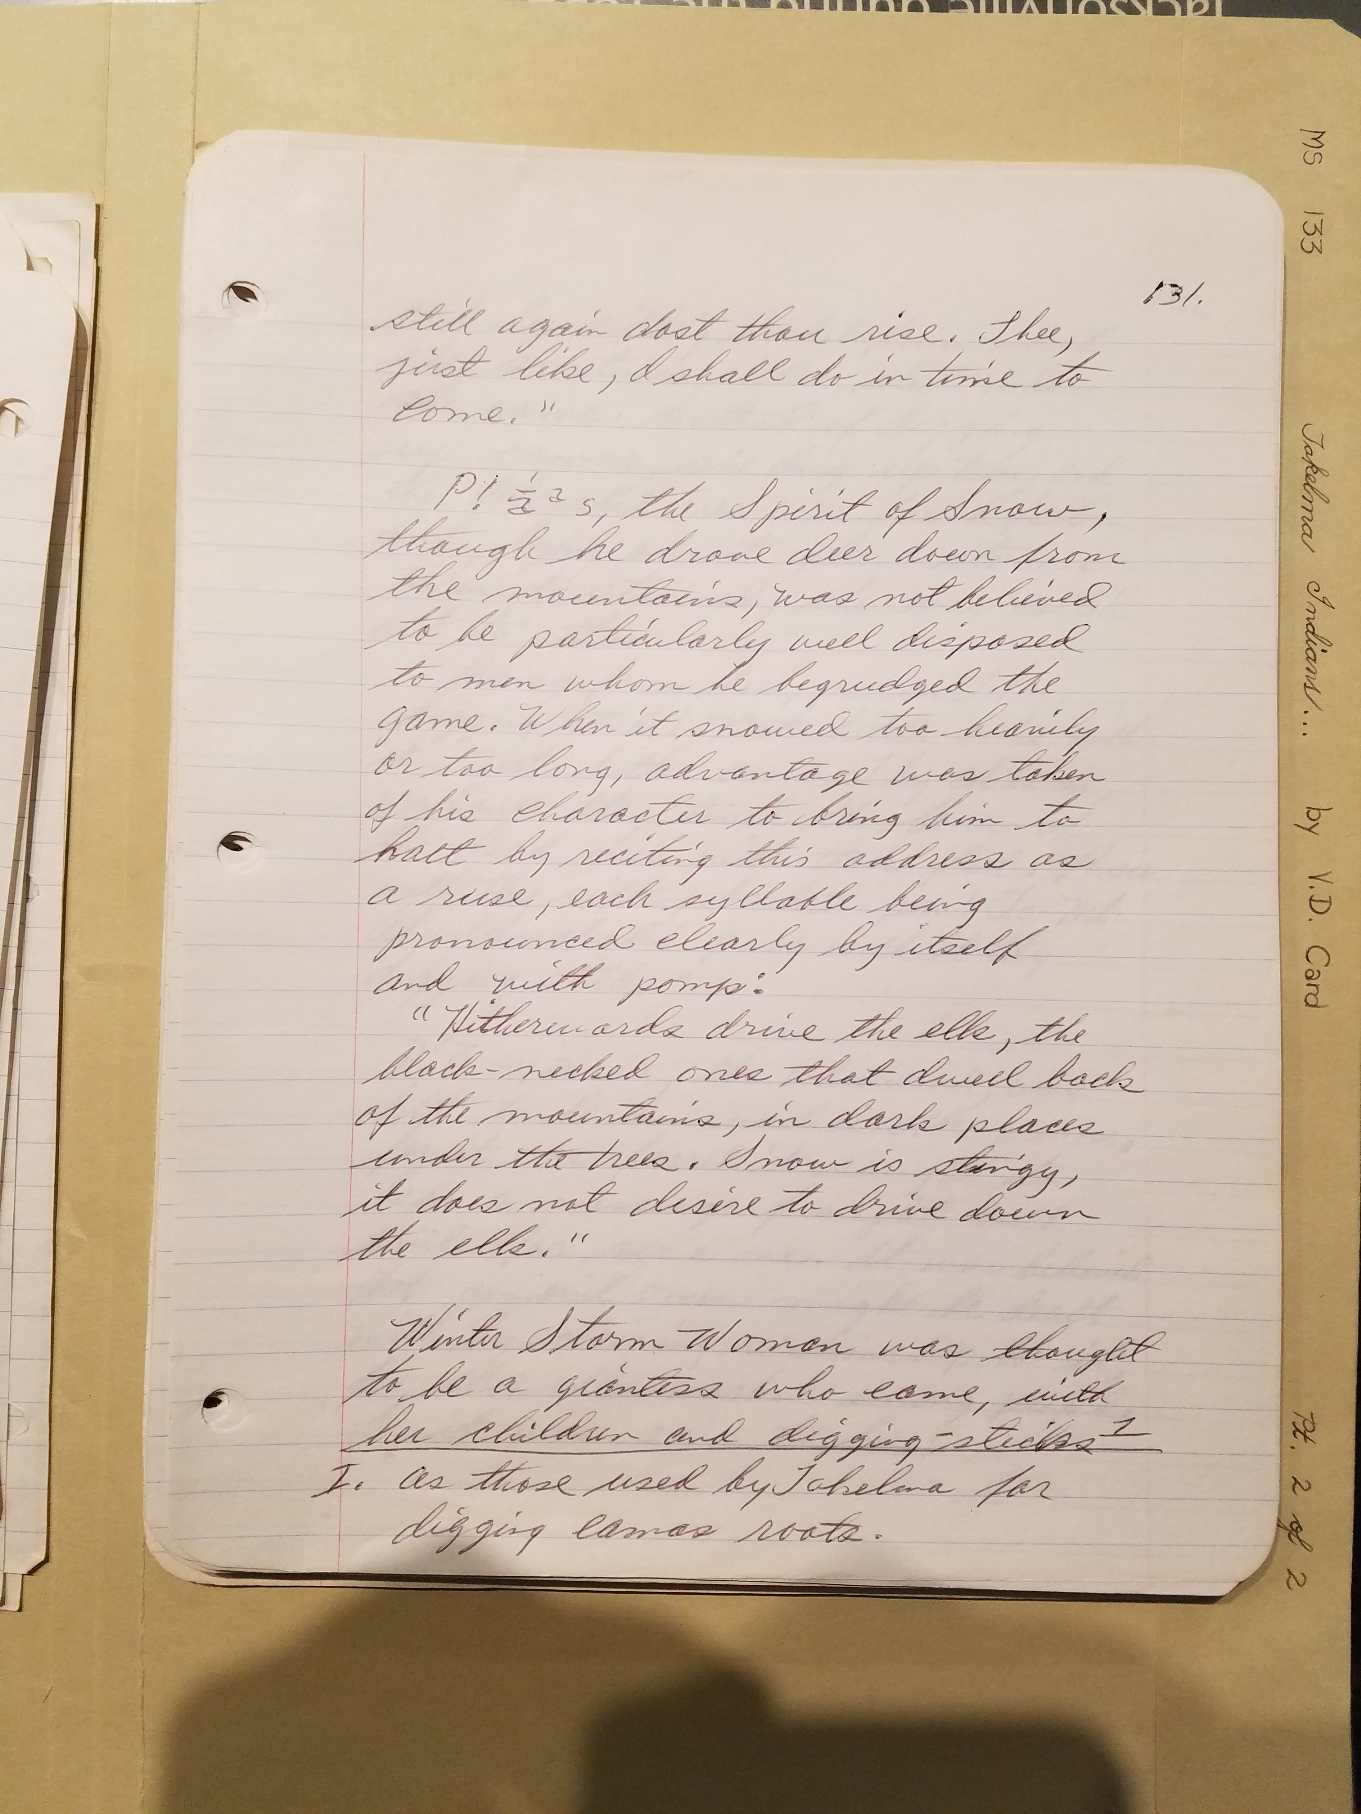 131.
still again dost thou rise. Thee,
just like, I shall do in time to
come."
the Spirit of Snow,
though he drove deer down from
the mountains, was not believed
to be particularly well disposed
to men whom he begrudged the
game. When it snowed too heavily
or too long, advantage was taken
of his character to bring him to
halt by reciting this address as
a ruse, each syllable being
pronounced clearly by itself
and with pomp:
"Hitherwards drive the elk, the
black-necked ones that dwell back
of the mountains, in dark places
under the trees. Snow is stingy,
it does not desire to drive down
the elk."
Winter Storm Woman was thought
to be a giantess who came, with
her children and digging-sticks 1
1. as those used by Takelma for
digging camas roots.
MS 133 Takelma Indians... by V.D. Card Pt. 2 of 2
Jacksonville during the